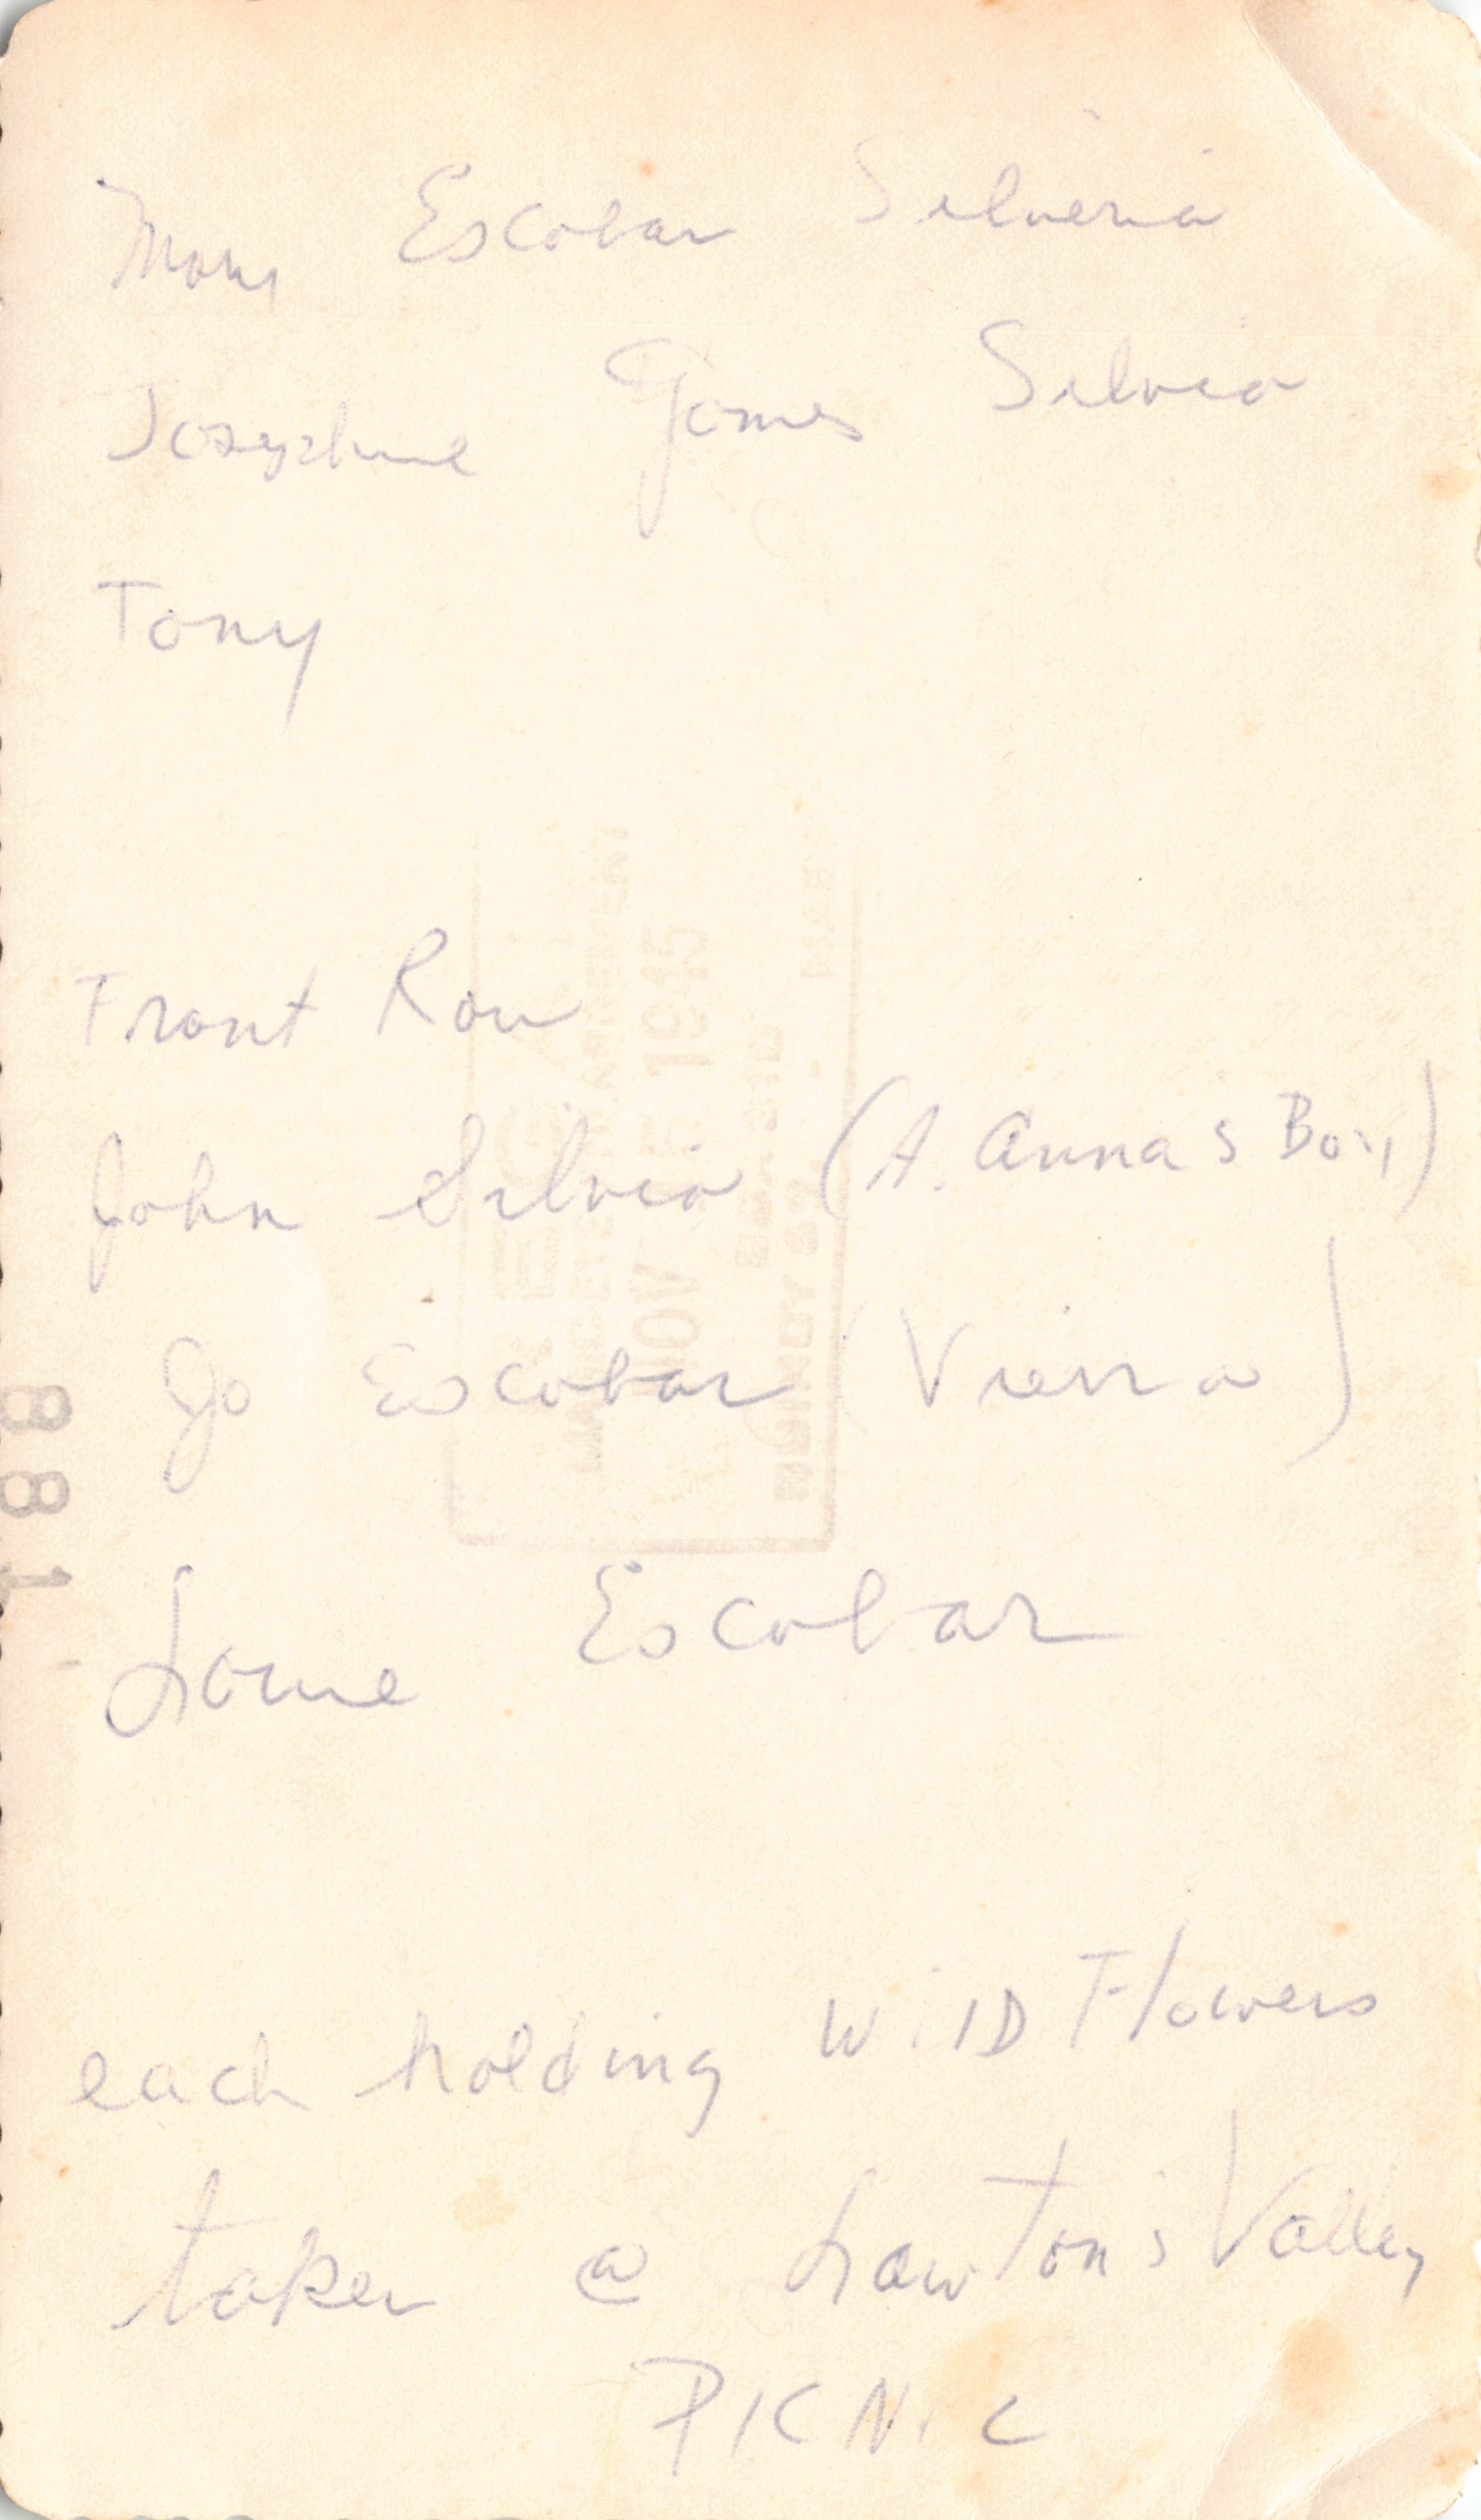 Mary Escobar Silveria
Josephine Gomes Silvia
Tony
Front Row
John Silvia (A. Anna's Boy)
Jo Escobar (Vierra)
Louie Escobar
each holding WilD Flowers
taken @ Lawton's Valley
PICNiC
NOV 1945
881